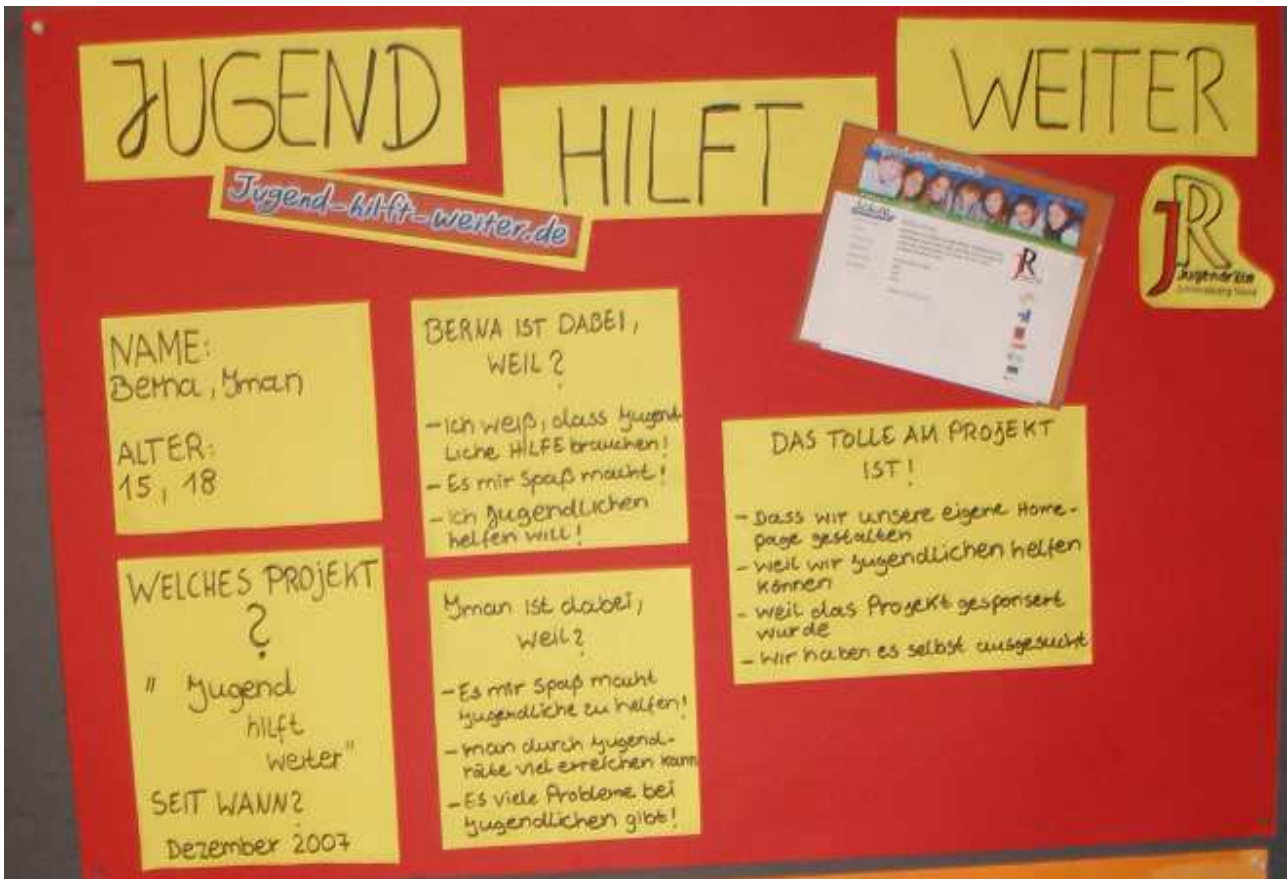 JUGEND
HILFT
WEITER
Jugend-hilft-weiter.de
JR
Jugendräte
NAME:
Berna, Iman
ALTER:
15, 18
WELCHES PROJEKT
?
" Jugend
hilft
weiter"
SEIT WANN?
Dezember 2007
BERNA IST DABEI,
WEIL?
- Ich weiß, dass Jugend-
liche HILFE brauchen!
- Es mir Spaß macht!
- Ich Jugendlichen
helfen will!
Iman ist dabei,
weil?
- Es mir Spaß macht
Jugendliche zu helfen!
- man durch Jugend-
räte viel erreichen kann
- Es viele Probleme bei
Jugendlichen gibt!
DAS TOLLE AM PROJEKT
IST!
- Dass wir unsere eigene Home-
page gestalten
- weil wir Jugendlichen helfen
können
- weil das Projekt gesponsert
wurde
- Wir haben es selbst ausgesucht